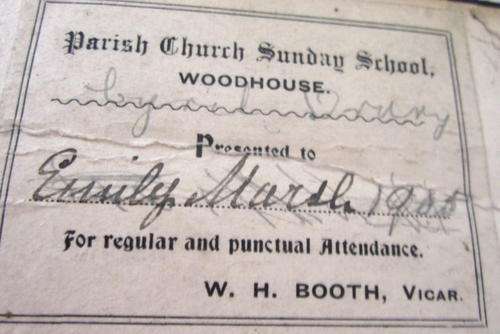 Parish Church Sunday School,
WOODHOUSE.
Presented to
Emily Marsh 1905
For regular and punctual Attendance.
W. H. BOOTH, VICAR.